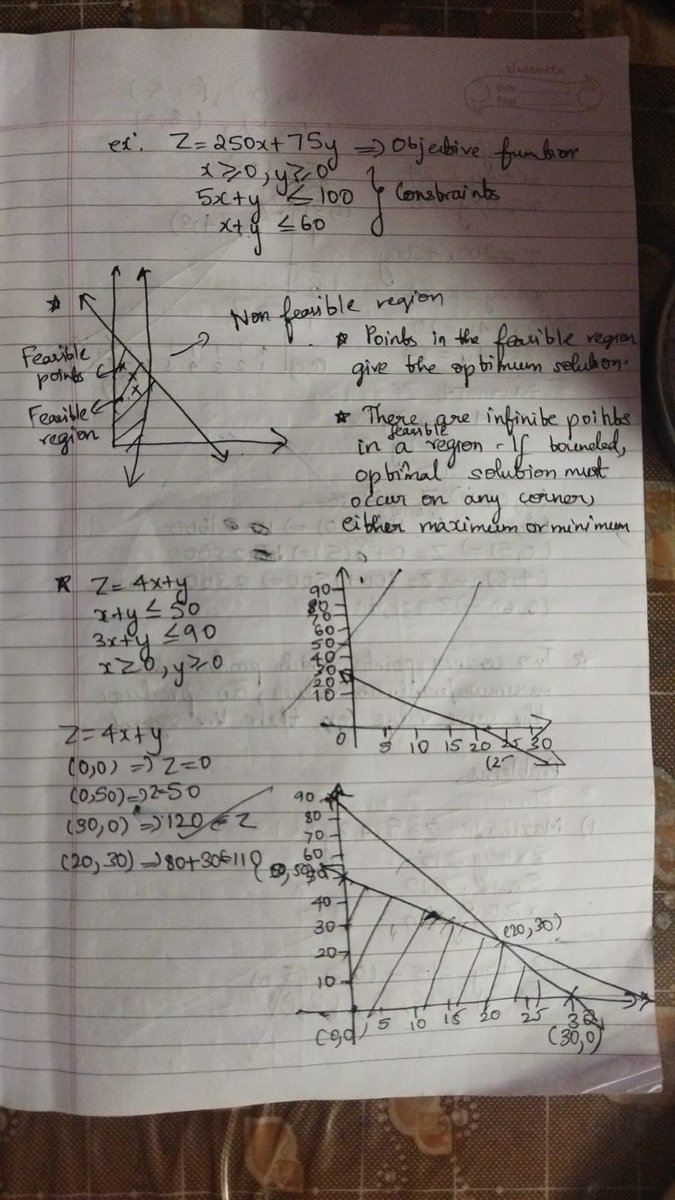 classmate
Date
Page
ex: Z = 250x + 75y => Objective function
x ≥ 0, y ≥ 0
5x+y ≤ 100 } Constraints
x+y ≤ 60
Non feasible region
Feasible points
Feasible region
* Points in the feasible region
give the optimum solution.
* There are infinite points
in a feasible region. If bounded,
optimal solution must
occur on any corner,
either maximum or minimum
* Z = 4x+y
x+y ≤ 50
3x+y ≤ 90
x ≥ 0, y ≥ 0
90
80
70
60
50
40
30
20
10
0 5 10 15 20 25 30
(25
Z = 4x+y
(0,0) => Z=0
(0,50) => Z=50
(30,0) => 120 = Z
(20,30) => 80+30=110
90
80
70
60
40
30
20
10
(20,30)
(0,0) 5 10 15 20 25
(30,0)